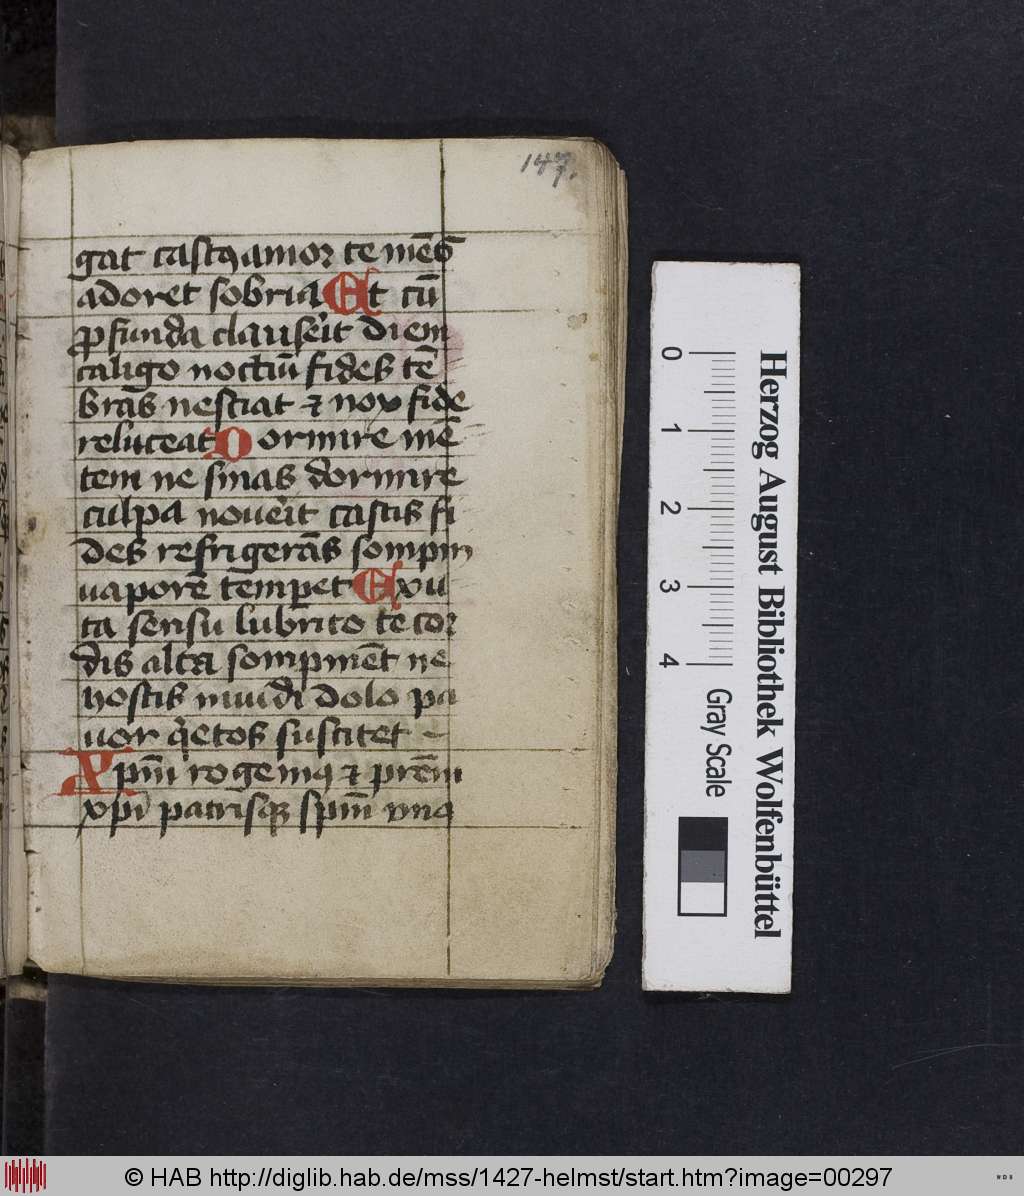 147.
gat castꝯ amor te mēs
adoret sobria Et cū
ꝓfunda clauserit diem
caligo noctiū fides tē
bras nesciat ⁊ nox fide
reluceat Dormire mē
tem ne sinas dormire
culpa nouerit castis fi
des refrigerās sompni
uaporē temperet Exu
ta sensu lubrito te cor
dis alta sompniēt ne
hostis inuidi dolo pa
uor q̇etos suscitet
Xpm̄ rogemꝯ ⁊ prēm
xpi patrisqꝫ spm̄ vnū
0
1
2
3
4
Gray Scale
Herzog August Bibliothek Wolfenbüttel
© HAB http://diglib.hab.de/mss/1427-helmst/start.htm?image=00297